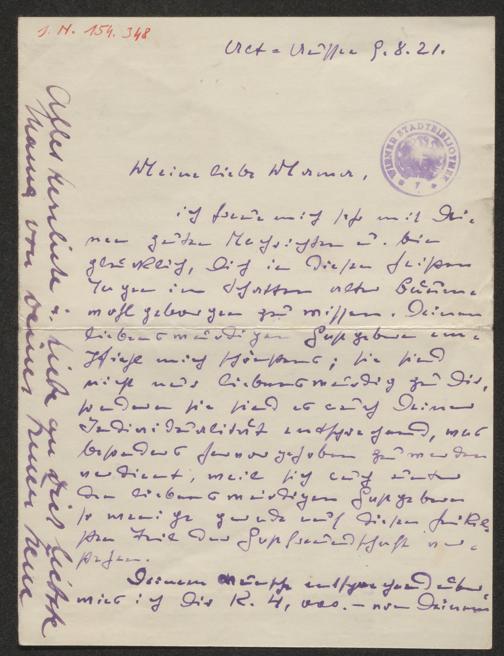 J. N. 154.348
Alt-Aussee 9.8.21.
WIENER STADTBIBLIOTHEK
7
Meine liebe Mama,
ich freue mich sehr mit Dei-
nen guten Nachrichten u. bin
glücklich, Dich in diesen heißen
Tagen im Schatten alter Bäume
wohl geborgen zu wissen. Deinen
liebenswürdigen Gastgebern em-
pfiehl mich schönstens; sie sind
nicht nur liebenswürdig zu Dir,
sondern sie sind es auch Deiner
Individualität entsprechend, was
besonders hervorgehoben zu werden
verdient, weil sich auch unter
den liebenswürdigen Gastgebern
so wenige gerade auf diesen heikel-
sten Teil der Gastfreundschaft ver-
stehen.
Deinem Wunsche entsprechend über-
wies ich Dir K. 4,000.– von Deinem
Alles herzliche u. liebe an
Mama von Deiner